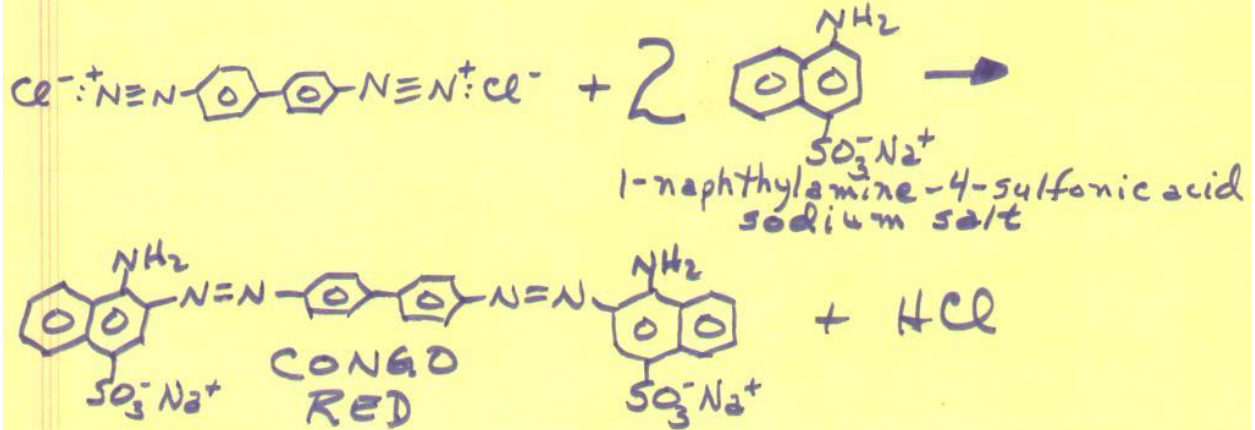 Cl⁻ :⁺N≡N- -N≡N⁺: Cl⁻ + 2 NH₂ →
SO₃⁻Na⁺
1-naphthylamine-4-sulfonic acid
sodium salt
NH₂ -N=N- -N=N- NH₂ + HCl
CONGO
RED
SO₃⁻Na⁺ SO₃⁻Na⁺